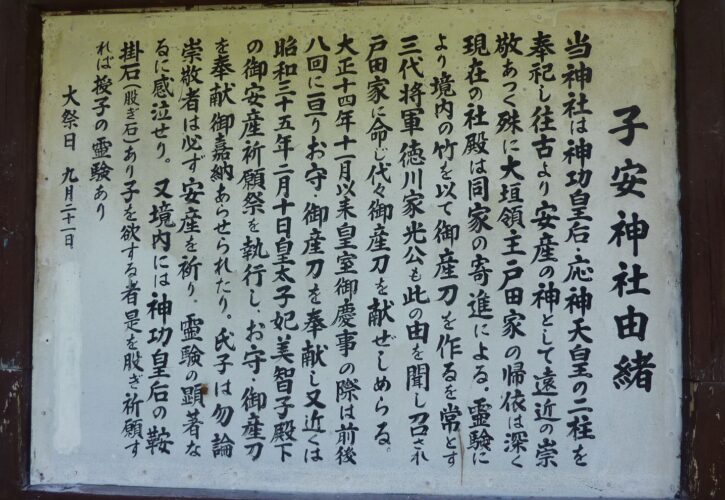 子安神社由緒
当神社は神功皇后・応神天皇の二柱を
奉祀し往古より安産の神として遠近の崇
敬あつく殊に大垣領主戸田家の帰依は深く
現在の社殿は同家の寄進による。霊験に
より境内の竹を以て御産刀を作るを常とす
三代将軍徳川家光公も此の由を聞し召され
戸田家に命じ代々御産刀を献ぜしめらる。
大正十四年十一月以来皇室御慶事の際は前後
八回に亘りお守、御産刀を奉献し又近くは
昭和三十五年二月十日皇太子妃美智子殿下
の御安産祈願祭を執行し、お守・御産刀
を奉献御嘉納あらせられたり。氏子は勿論
崇敬者は必ず安産を祈り、霊験の顕著な
るに感泣せり。又境内には神功皇后の鞍
掛石(股ぎ石)あり子を欲する者是を股ぎ祈願す
れば授子の霊験あり
大祭日 九月二十一日